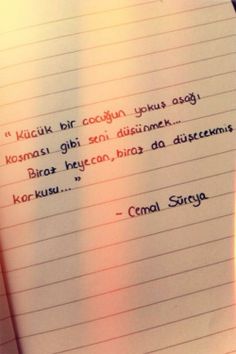 " Küçük bir çocuğun yokuş aşağı
koşması gibi seni düşünmek...
Biraz heyecan, biraz da düşecekmiş
korkusu... "
- Cemal Süreya